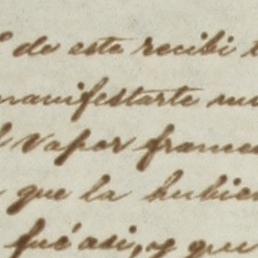 de esta recibi
manifestarte
vapor frances
que la hubie
fué asi, y que